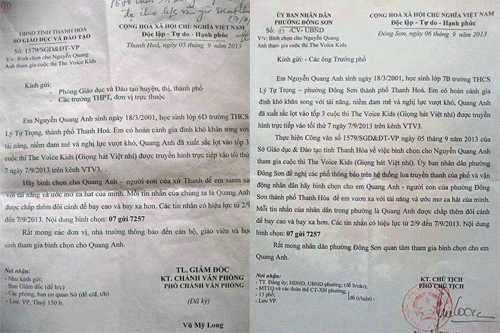 UBND TỈNH THANH HOÁ
SỞ GIÁO DỤC VÀ ĐÀO TẠO
Số: 1579/SGDĐT-VP
V/v: Bình chọn cho Nguyễn Quang
Anh tham gia cuộc thi The Voice Kids
CỘNG HOÀ XÃ HỘI CHỦ NGHĨA VIỆT NAM
Độc lập - Tự do - Hạnh phúc
Thanh Hoá, ngày 05 tháng 9 năm 2013
Kính gửi:
Phòng Giáo dục và Đào tạo huyện, thị, thành phố
Các trường THPT, đơn vị trực thuộc
Em Nguyễn Quang Anh sinh ngày 18/3/2001, học sinh lớp 6D trường THCS
Lý Tự Trọng, thành phố Thanh Hoá. Em có hoàn cảnh gia đình khó khăn song với
tài năng, niềm đam mê và nghị lực vượt khó, Quang Anh đã xuất sắc lọt vào tốp 3
cuộc thi The Voice Kids (Giọng hát Việt nhí) được truyền hình trực tiếp vào tối thứ
7 ngày 7/9/2013 trên kênh VTV3.
Hãy bình chọn cho Quang Anh - người con của xứ Thanh để em
với tài năng và ước mơ ca hát của mình. Mỗi tin nhắn của chúng ta là Quang Anh
được chắp thêm đôi cánh để bay cao và bay xa hơn. Các tin nhắn có hiệu lực từ 2/9
đến 7/9/2013. Nội dung bình chọn: 07 gửi 7257
Rất mong các đơn vị, nhà trường thông báo đến cán bộ, giáo viên và học
sinh tham gia bình chọn cho Quang Anh.
Nơi nhận:
- Như kính gửi;
- Ban Giám đốc (để b/c)
- Các phòng, ban cơ quan Sở (để c/đ, t/h)
- Lưu: VP, Thuý 150 b.
TL. GIÁM ĐỐC
KT. CHÁNH VĂN PHÒNG
PHÓ CHÁNH VĂN PHÒNG
(Đã ký)
Vũ Mỹ Long
ỦY BAN NHÂN DÂN
PHƯỜNG ĐÔNG SƠN
Số: /CV- UBND
V/v: Bình chọn cho Nguyễn Quang
Anh tham gia cuộc thi The Voice Kids
CỘNG HOÀ XÃ HỘI CHỦ NGHĨA VIỆT NAM
Độc lập - Tự do - Hạnh phúc
Đông Sơn, ngày 06 tháng 9 năm 2013
Kính gửi: - Các ông Trưởng phố
Em Nguyễn Quang Anh sinh ngày 18/3/2001, học sinh lớp 7B trường THCS
Lý Tự Trọng – phường Đông Sơn thành phố Thanh Hoá. Em có hoàn cảnh gia
đình khó khăn song với tài năng, niềm đam mê và nghị lực vượt khó, Quang Anh
đã xuất sắc lọt vào tốp 3 cuộc thi The Voice Kids (Giọng hát Việt nhí) được truyền
hình trực tiếp vào tối thứ 7 ngày 7/9/2013 trên kênh VTV3.
Thực hiện Công văn số 1579/SGDĐT-VP ngày 05 tháng 09 năm 2013 của
Sở Giáo dục & Đào tạo tỉnh Thanh Hóa về việc bình chọn cho Nguyễn Quang Anh
tham gia cuộc thi The Voice Kids (Giọng hát Việt nhí). Ủy ban nhân dân phường
Đông Sơn đề nghị các phố thông báo trên hệ thống loa truyền thanh của phố và vận
động nhân dân hãy bình chọn cho em Quang Anh - người con của phường Đông
Sơn thành phố Thanh Hóa - để em vươn xa với tài năng và ước mơ ca hát của mình.
Mỗi tin nhắn của nhân dân trong phường là Quang Anh được chắp thêm đôi cánh
để bay cao và bay xa hơn. Các tin nhắn có hiệu lực từ 2/9 đến 7/9/2013. Nội dung
bình chọn: 07 gửi 7257
Rất mong nhân dân phường Đông Sơn quan tâm tham gia bình chọn cho em
Quang Anh.
Nơi nhận:
- TT. Đảng ủy, HĐND, UBND phường; (để b/c);
- MTTQ và các đoàn thể CT-XH phường;
- 15 phố;
- Lưu VP.
KT. CHỦ TỊCH
PHÓ CHỦ TỊCH